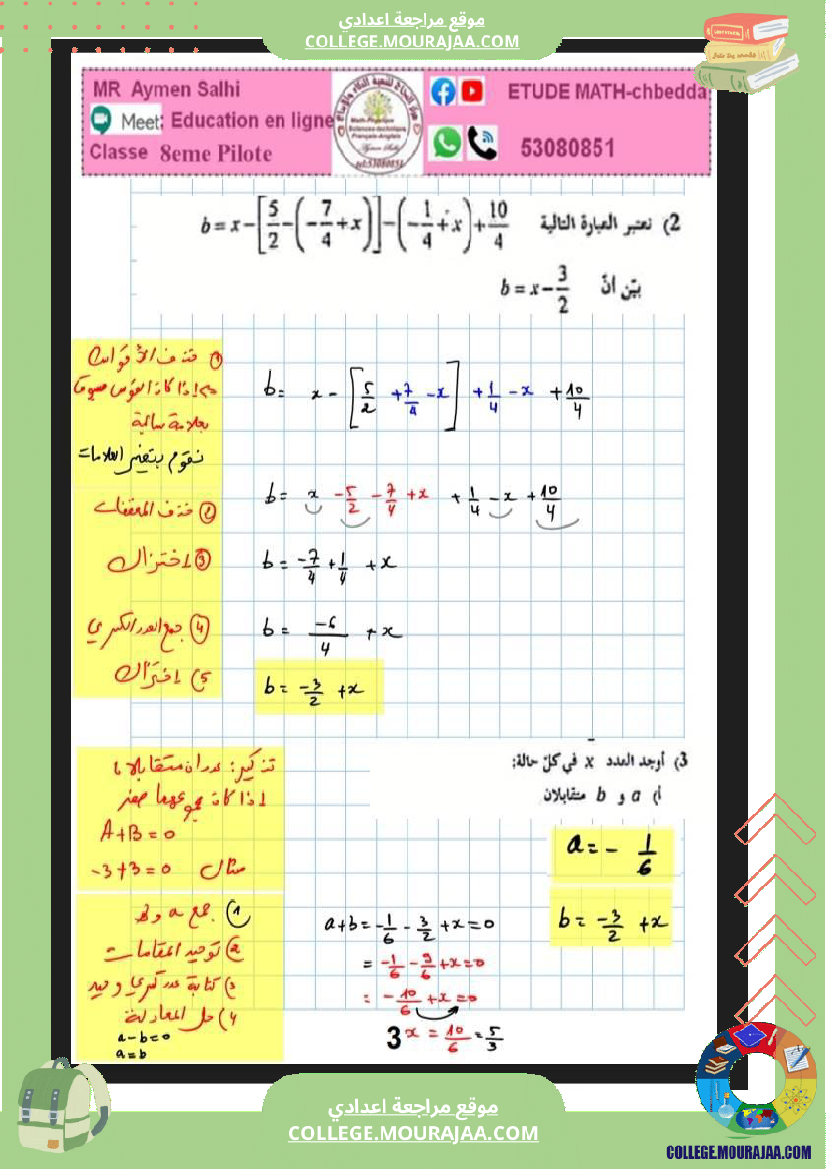 موقع مراجعة اعدادي
COLLEGE.MOURAJAA.COM
MR Aymen Salhi
Meet: Education en ligne
Classe 8eme Pilote
ETUDE MATH-chbedda
53080851
2) نعتبر العبارة التالية b = x - [5/2 - (-7/4 + x)] - (-1/4 + x) + 10/4
بيّن انّ b = x - 3/2
① حذف الأقواس
اذا كان القوس مسبوقا
بعلامة سالبة
نقوم بتغيير العلامات
b = x - [5/2 + 7/4 - x] + 1/4 - x + 10/4
② حذف المعقفات
b = x - 5/2 - 7/4 + x + 1/4 - x + 10/4
③ اختزال
b = -7/4 + 1/4 + x
④ جمع العدد الكسري
b = -6/4 + x
5) اختزال
b = -3/2 + x
3) أوجد العدد x في كلّ حالة:
أ) a و b متقابلان
تذكير: عددان متقابلان
اذا كان مجموعهما صفر
A+B=0
مثال -3+3=0
a = - 1/6
b = -3/2 + x
① جمع a و b
② توحيد المقامات
3) كتابة عدد كسري وحيد
4) حل المعادلة
a-b=0
a=b
a+b = -1/6 - 3/2 + x = 0
= -1/6 - 9/6 + x = 0
= -10/6 + x = 0
3 x = 10/6 = 5/3
موقع مراجعة اعدادي
COLLEGE.MOURAJAA.COM
COLLEGE.MOURAJAA.COM